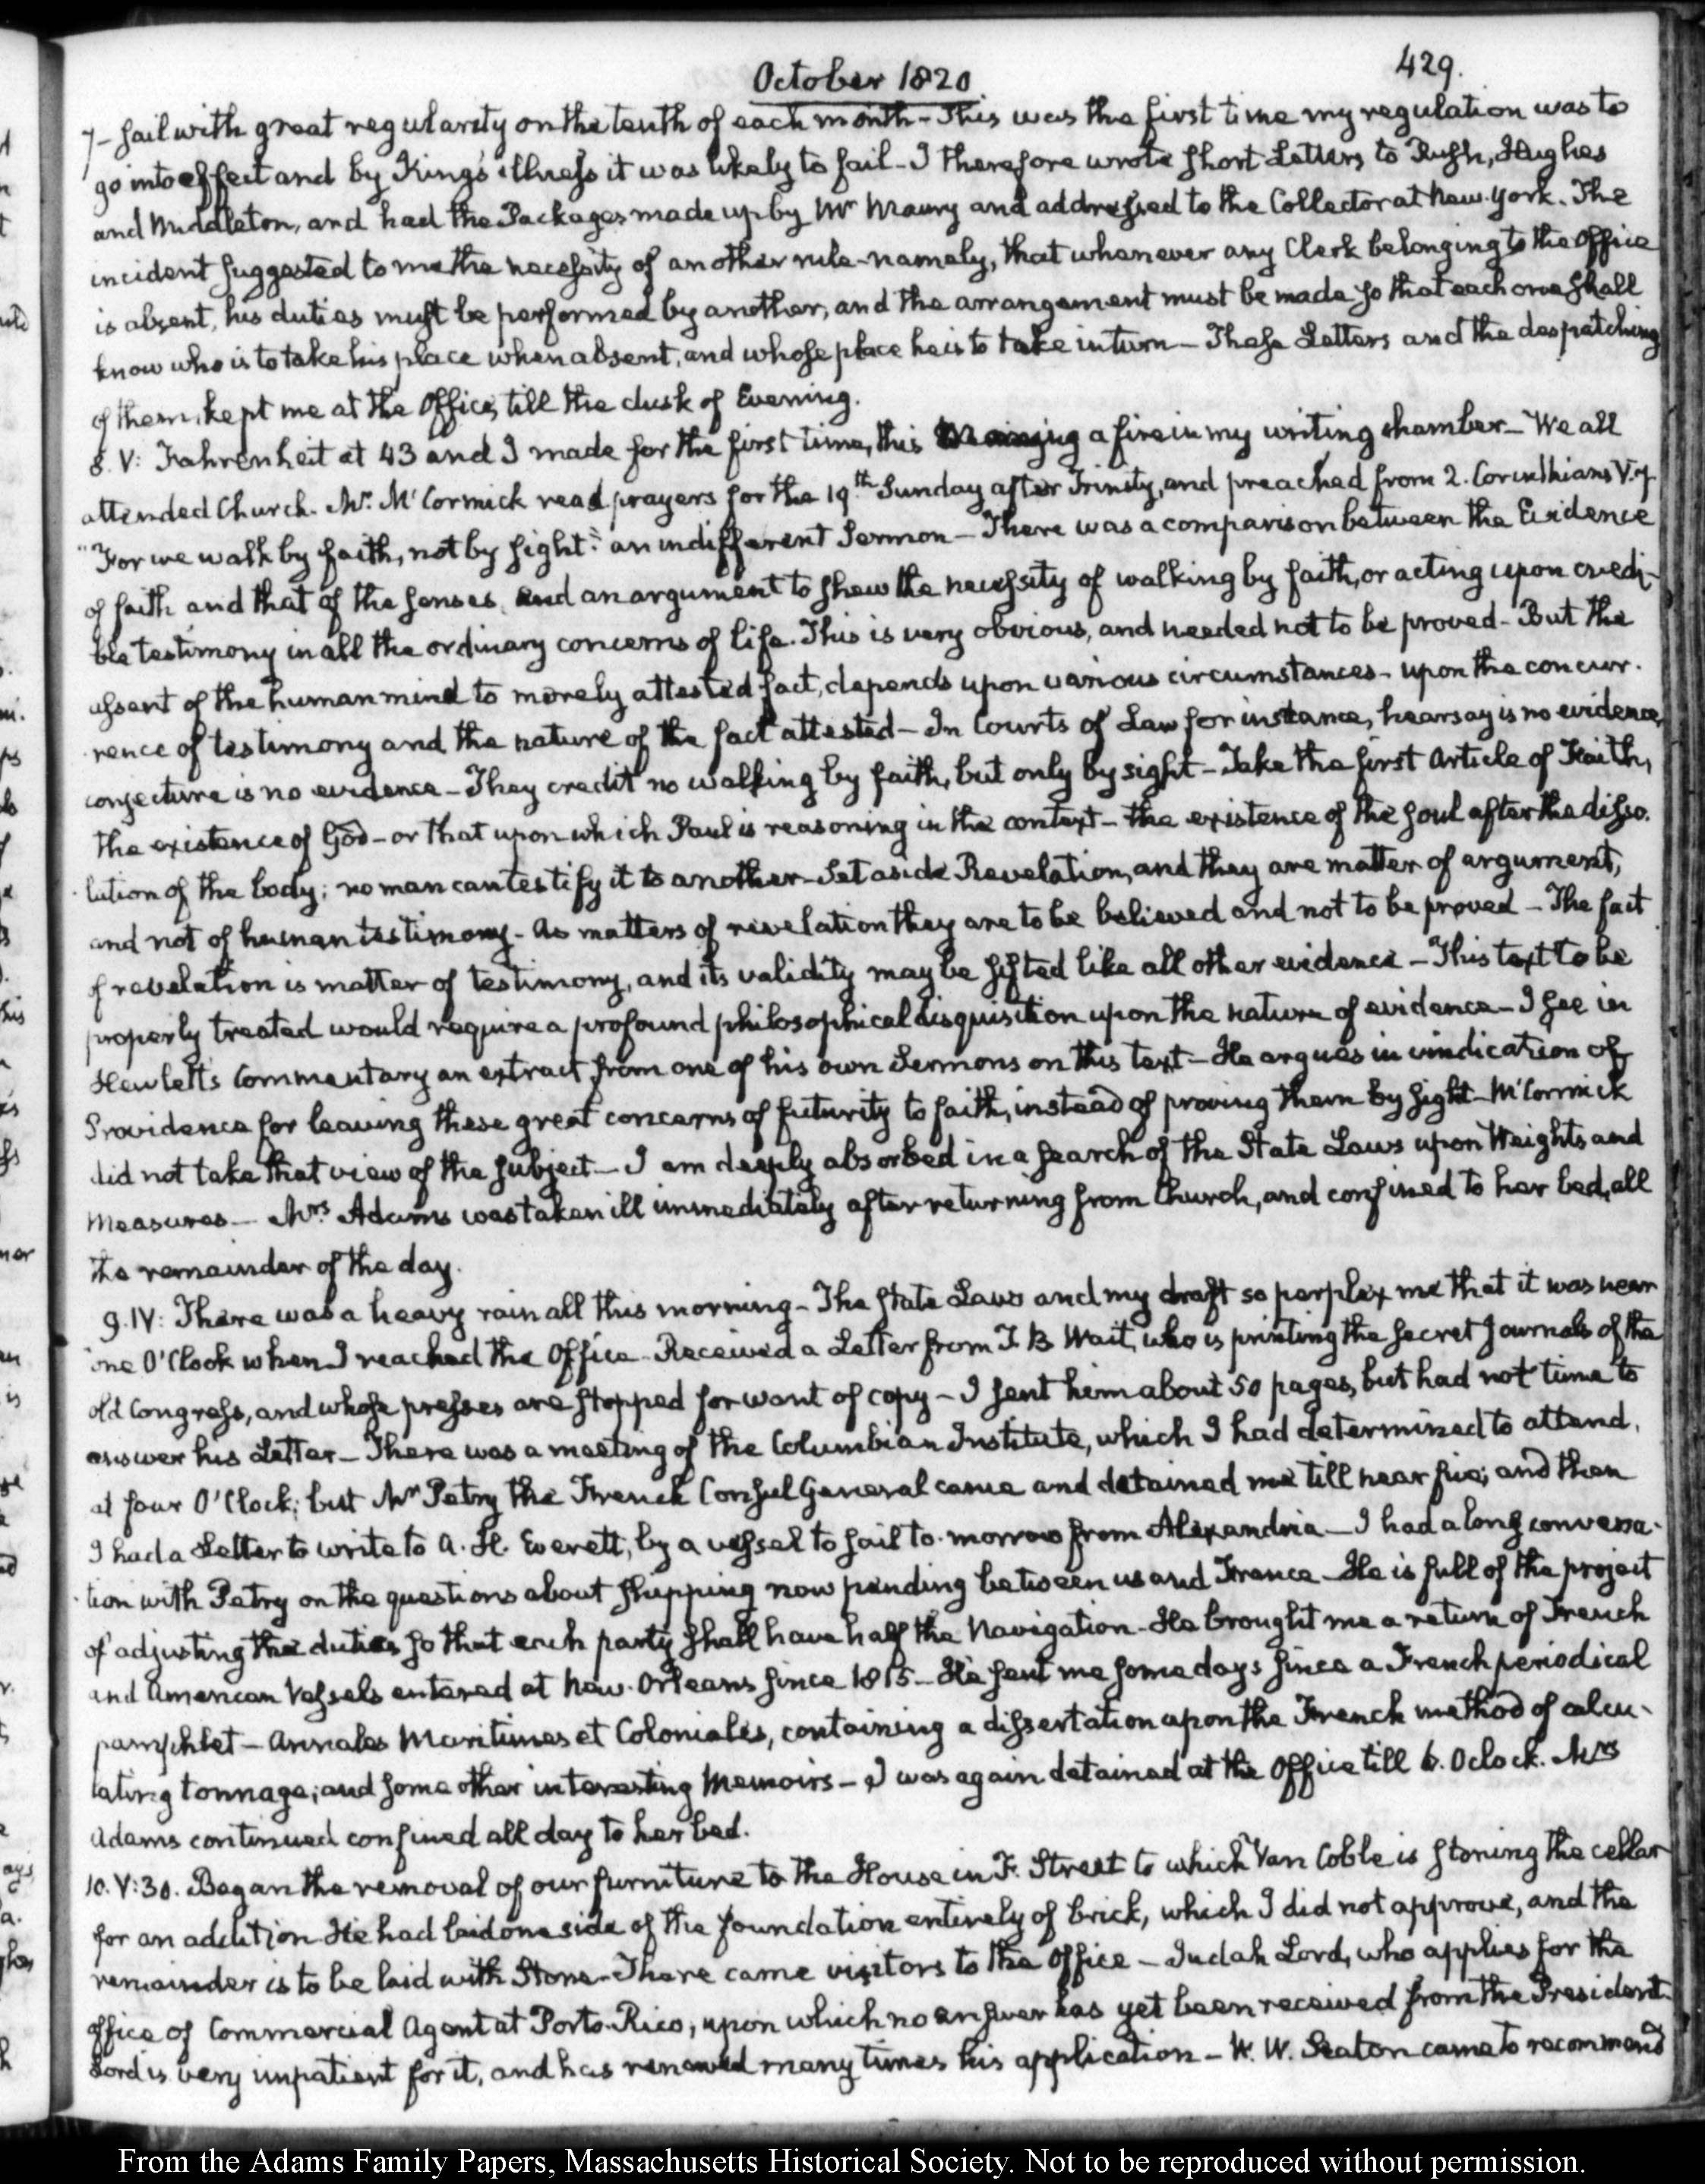 October 1820
429.
7- sail with great regularity on the tenth of each month - This was the first time my regulation was to
go into effect and by King's illness it was likely to fail - I therefore wrote short Letters to Rush, Hughes
and Middleton, and had the Packages made up by Mr Maury and addressed to the Collector at New-York. The
incident suggested to me the necessity of another rule - namely, that whenever any Clerk belonging to the Office
is absent, his duties must be performed by another, and the arrangement must be made so that each one shall
know who is to take his place when absent, and whose place he is to take in turn - These Letters and the despatching
of them, kept me at the Office, till the dusk of Evening.
8. V: Fahrenheit at 43 and I made for the first time, this Morning a fire in my writing chamber - We all
attended Church. Mr. McCormick read prayers for the 19th Sunday after Trinity, and preached from 2. Corinthians V. 7
"For we walk by faith, not by sight:" an indifferent Sermon - There was a comparison between the Evidence
of faith and that of the senses, and an argument to shew the necessity of walking by faith, or acting upon credi-
ble testimony in all the ordinary concerns of life. This is very obvious, and needed not to be proved - But the
assent of the human mind to merely attested fact, depends upon various circumstances - upon the concur-
rence of testimony and the nature of the fact attested - In Courts of Law for instance, hearsay is no evidence,
conjecture is no evidence - They credit no walking by faith, but only by sight - Take the first Article of Faith,
the existence of God - or that upon which Paul is reasoning in the context - the existence of the soul after the disso-
lution of the body; no man can testify it to another - Set aside Revelation, and they are matter of argument,
and not of human testimony - As matters of revelation they are to be believed and not to be proved - The fact
of revelation is matter of testimony, and its validity may be sifted like all other evidence - This text to be
properly treated would require a profound philosophical disquisition upon the nature of evidence - I see in
Hewlett's Commentary an extract from one of his own Sermons on this text - He argues in vindication of
Providence for leaving these great concerns of futurity to faith, instead of proving them by sight - McCormick
did not take that view of the subject - I am deeply absorbed in a search of the State Laws upon Weights and
Measures - Mrs Adams was taken ill immediately after returning from Church, and confined to her bed, all
the remainder of the day.
9. IV: There was a heavy rain all this morning - The State Laws and my draft so perplex me that it was near
one O'Clock when I reached the Office - Received a Letter from T. B. Wait, who is printing the secret Journals of the
old Congress, and whose presses are stopped for want of copy - I sent him about 50 pages, but had not time to
answer his Letter - There was a meeting of the Columbian Institute, which I had determined to attend,
at four O'Clock; but Mr Petry the French Consul General came and detained me till near five; and then
I had a Letter to write to A. H. Everett, by a vessel to sail to-morrow from Alexandria - I had a long conversa-
tion with Petry on the questions about shipping now pending between us and France - He is full of the project
of adjusting the duties so that each party shall have half the Navigation - He brought me a return of French
and American Vessels entered at New-Orleans since 1815 - He sent me some days since a French periodical
pamphlet - Annales Maritimes et Coloniales, containing a dissertation upon the French method of calcu-
lating tonnage; and some other interesting Memoirs - I was again detained at the Office till 6. O'clock. Mrs
Adams continued confined all day to her bed.
10. V:30. Began the removal of our furniture to the House in F. Street to which Van Coble is stoning the cellar
for an addition. He had laid one side of the foundation entirely of brick, which I did not approve, and the
remainder is to be laid with Stone - There came visitors to the Office - Judah Lord, who applies for the
office of Commercial Agent at Porto-Rico, upon which no answer has yet been received from the President.
Lord is very impatient for it, and has renewed many times his application - W. W. Seaton came to recommend
From the Adams Family Papers, Massachusetts Historical Society. Not to be reproduced without permission.